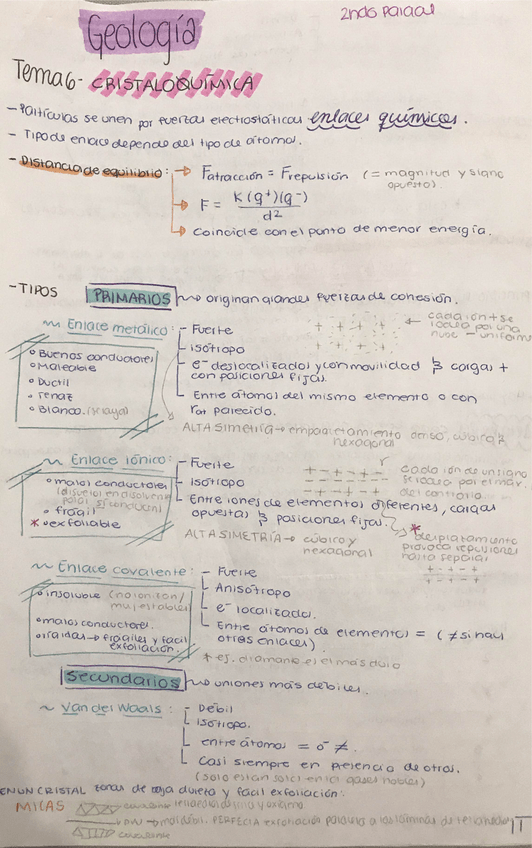 2ndo parcial
Geología
Tema 6- CRISTALOQUÍMICA
- Partículas se unen por fuerzas electrostáticas enlaces químicos.
- Tipo de enlace depende del tipo de átomo.
- Distancia de equilibrio: → Fatracción = Frepulsión (= magnitud y signo
opuesto).
→ F = K(q+)(q-) / d²
→ Coincide con el punto de menor energía.
- TIPOS PRIMARIOS ~> originan grandes fuerzas de cohesión.
~ Enlace metálico: - Fuerte
- isótropo
- e- deslocalizados y con movilidad & cargas +
con posiciones fijas.
- Entre átomos del mismo elemento o con
rat parecido.
o Buenos conductores
o Maleable
o Ductil
o Tenaz
o Blando. (se raya)
← cada ion + se
rodea por una
nube - uniforme
ALTA SIMETRÍA → empaquetamiento denso, cúbico &
hexagonal
~ Enlace iónico: - Fuerte
- isótropo
- Entre iones de elementos diferentes, cargas
opuestas & posiciones fijas.
o malos conductores
(disueltos en disolvente
polar, si conducen)
o frágil
* o exfoliable
cada ión de un signo
se rodea por el mar.
del contrario
ALTA SIMETRÍA → cúbico y
hexagonal
* desplazamiento
provoca repulsiones
hasta separar
~ Enlace covalente: - Fuerte
- Anisótropo
- e- localizado.
- Entre átomos de elementos = (≠ si hay
otros enlaces).
o insoluble (no ionizan/
muy estables)
o malos conductores.
o rígidos → frágiles y fácil
exfoliación.
+ ej. diamante es el más duro
Secundarios ~> uniones más débiles.
~ Van der Waals: - Débil
- isótropo.
- entre átomos = ó ≠.
- Casi siempre en presencia de otros.
(solo están solos en los gases nobles)
EN UN CRISTAL zonas de baja dureza y fácil exfoliación:
MICAS covalente tetraedros de silicio y oxígeno
→ VW → más débil. PERFECTA exfoliación paralela a las láminas de tetraedros
covalente